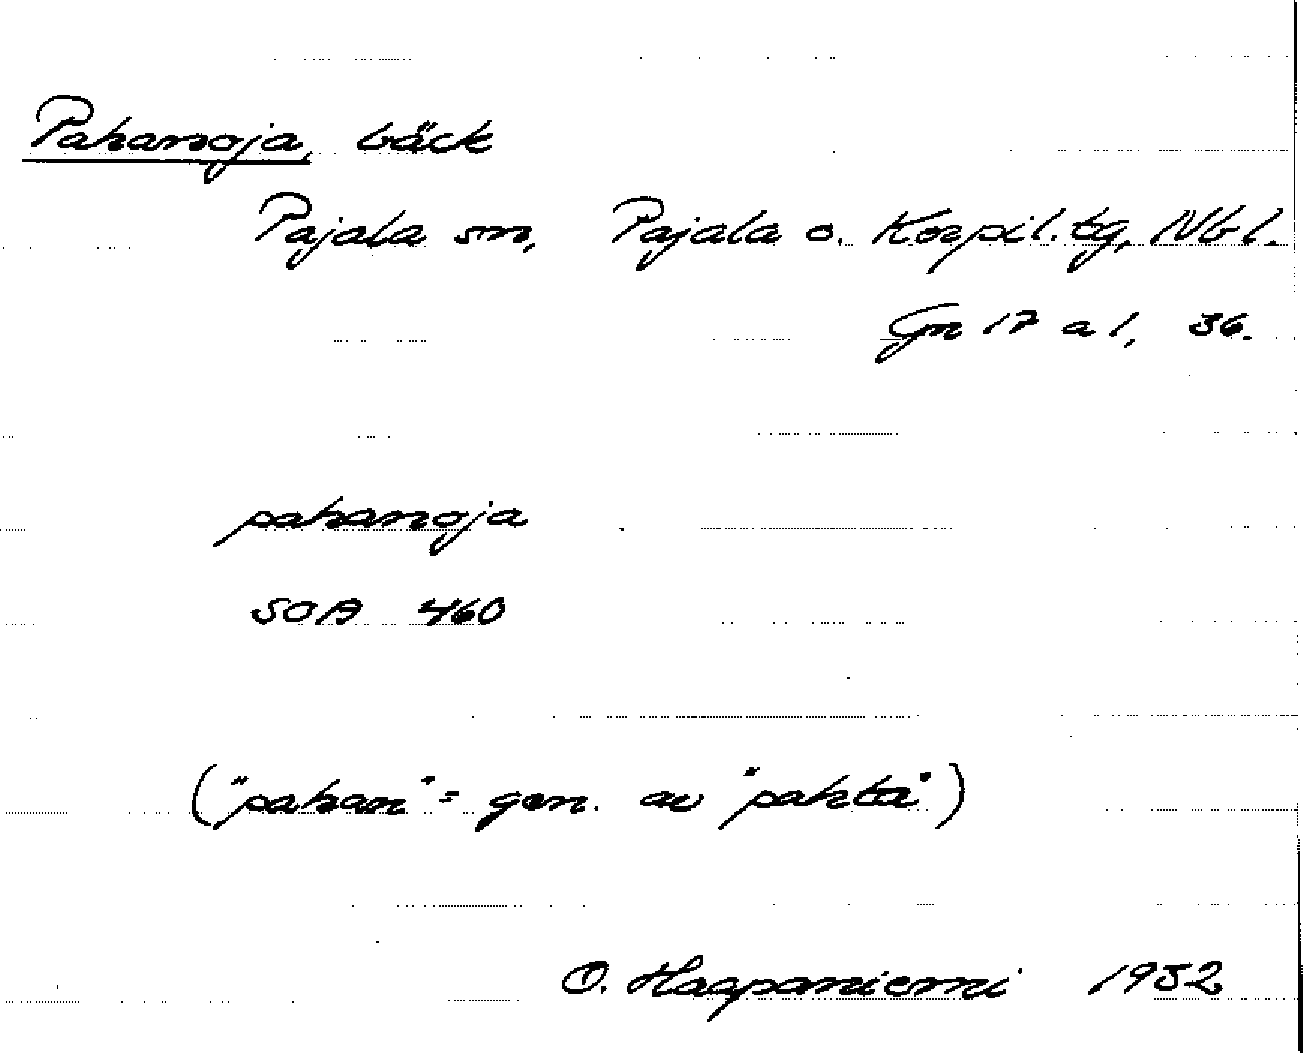 Pahanoja, bäck
Pajala sn, Pajala o. Korpil. tg, Nb l.
Gn 17 a 1, 36.
pahanoja
SOA 460
("pahan" = gen. av "pahta")
O. Haapaniemi 1952